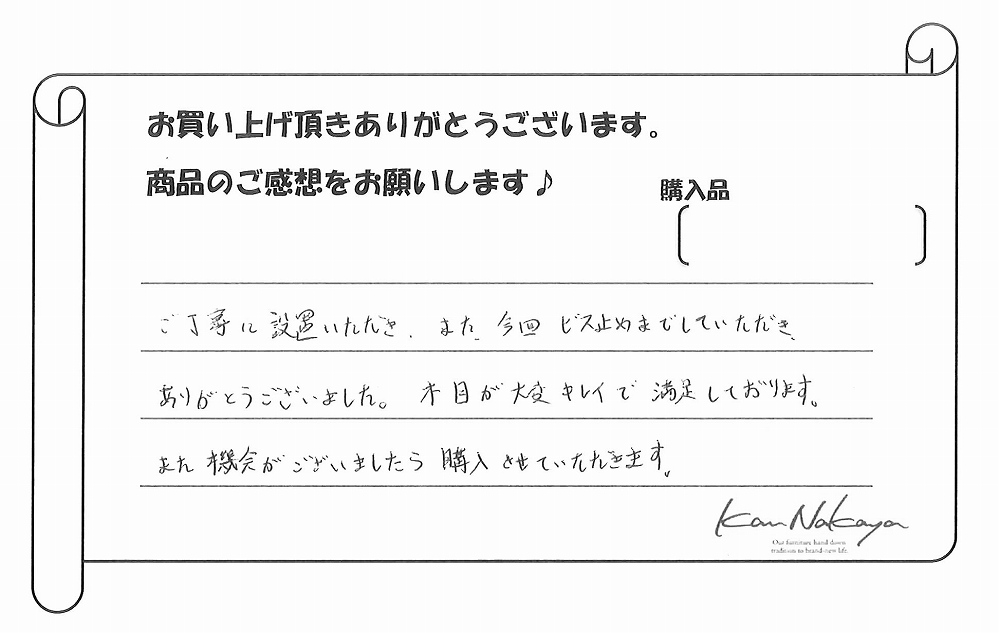 お買い上げ頂きありがとうございます。
商品のご感想をお願いします♪
購入品
ご丁寧に設置いただき、また、今回 ビス止めまでしていただき、
ありがとうございました。 木目が大変キレイで 満足しております。
また機会がございましたら 購入させていただきます。
Kan Nakaya
Our furniture hand down
tradition to brand-new life.